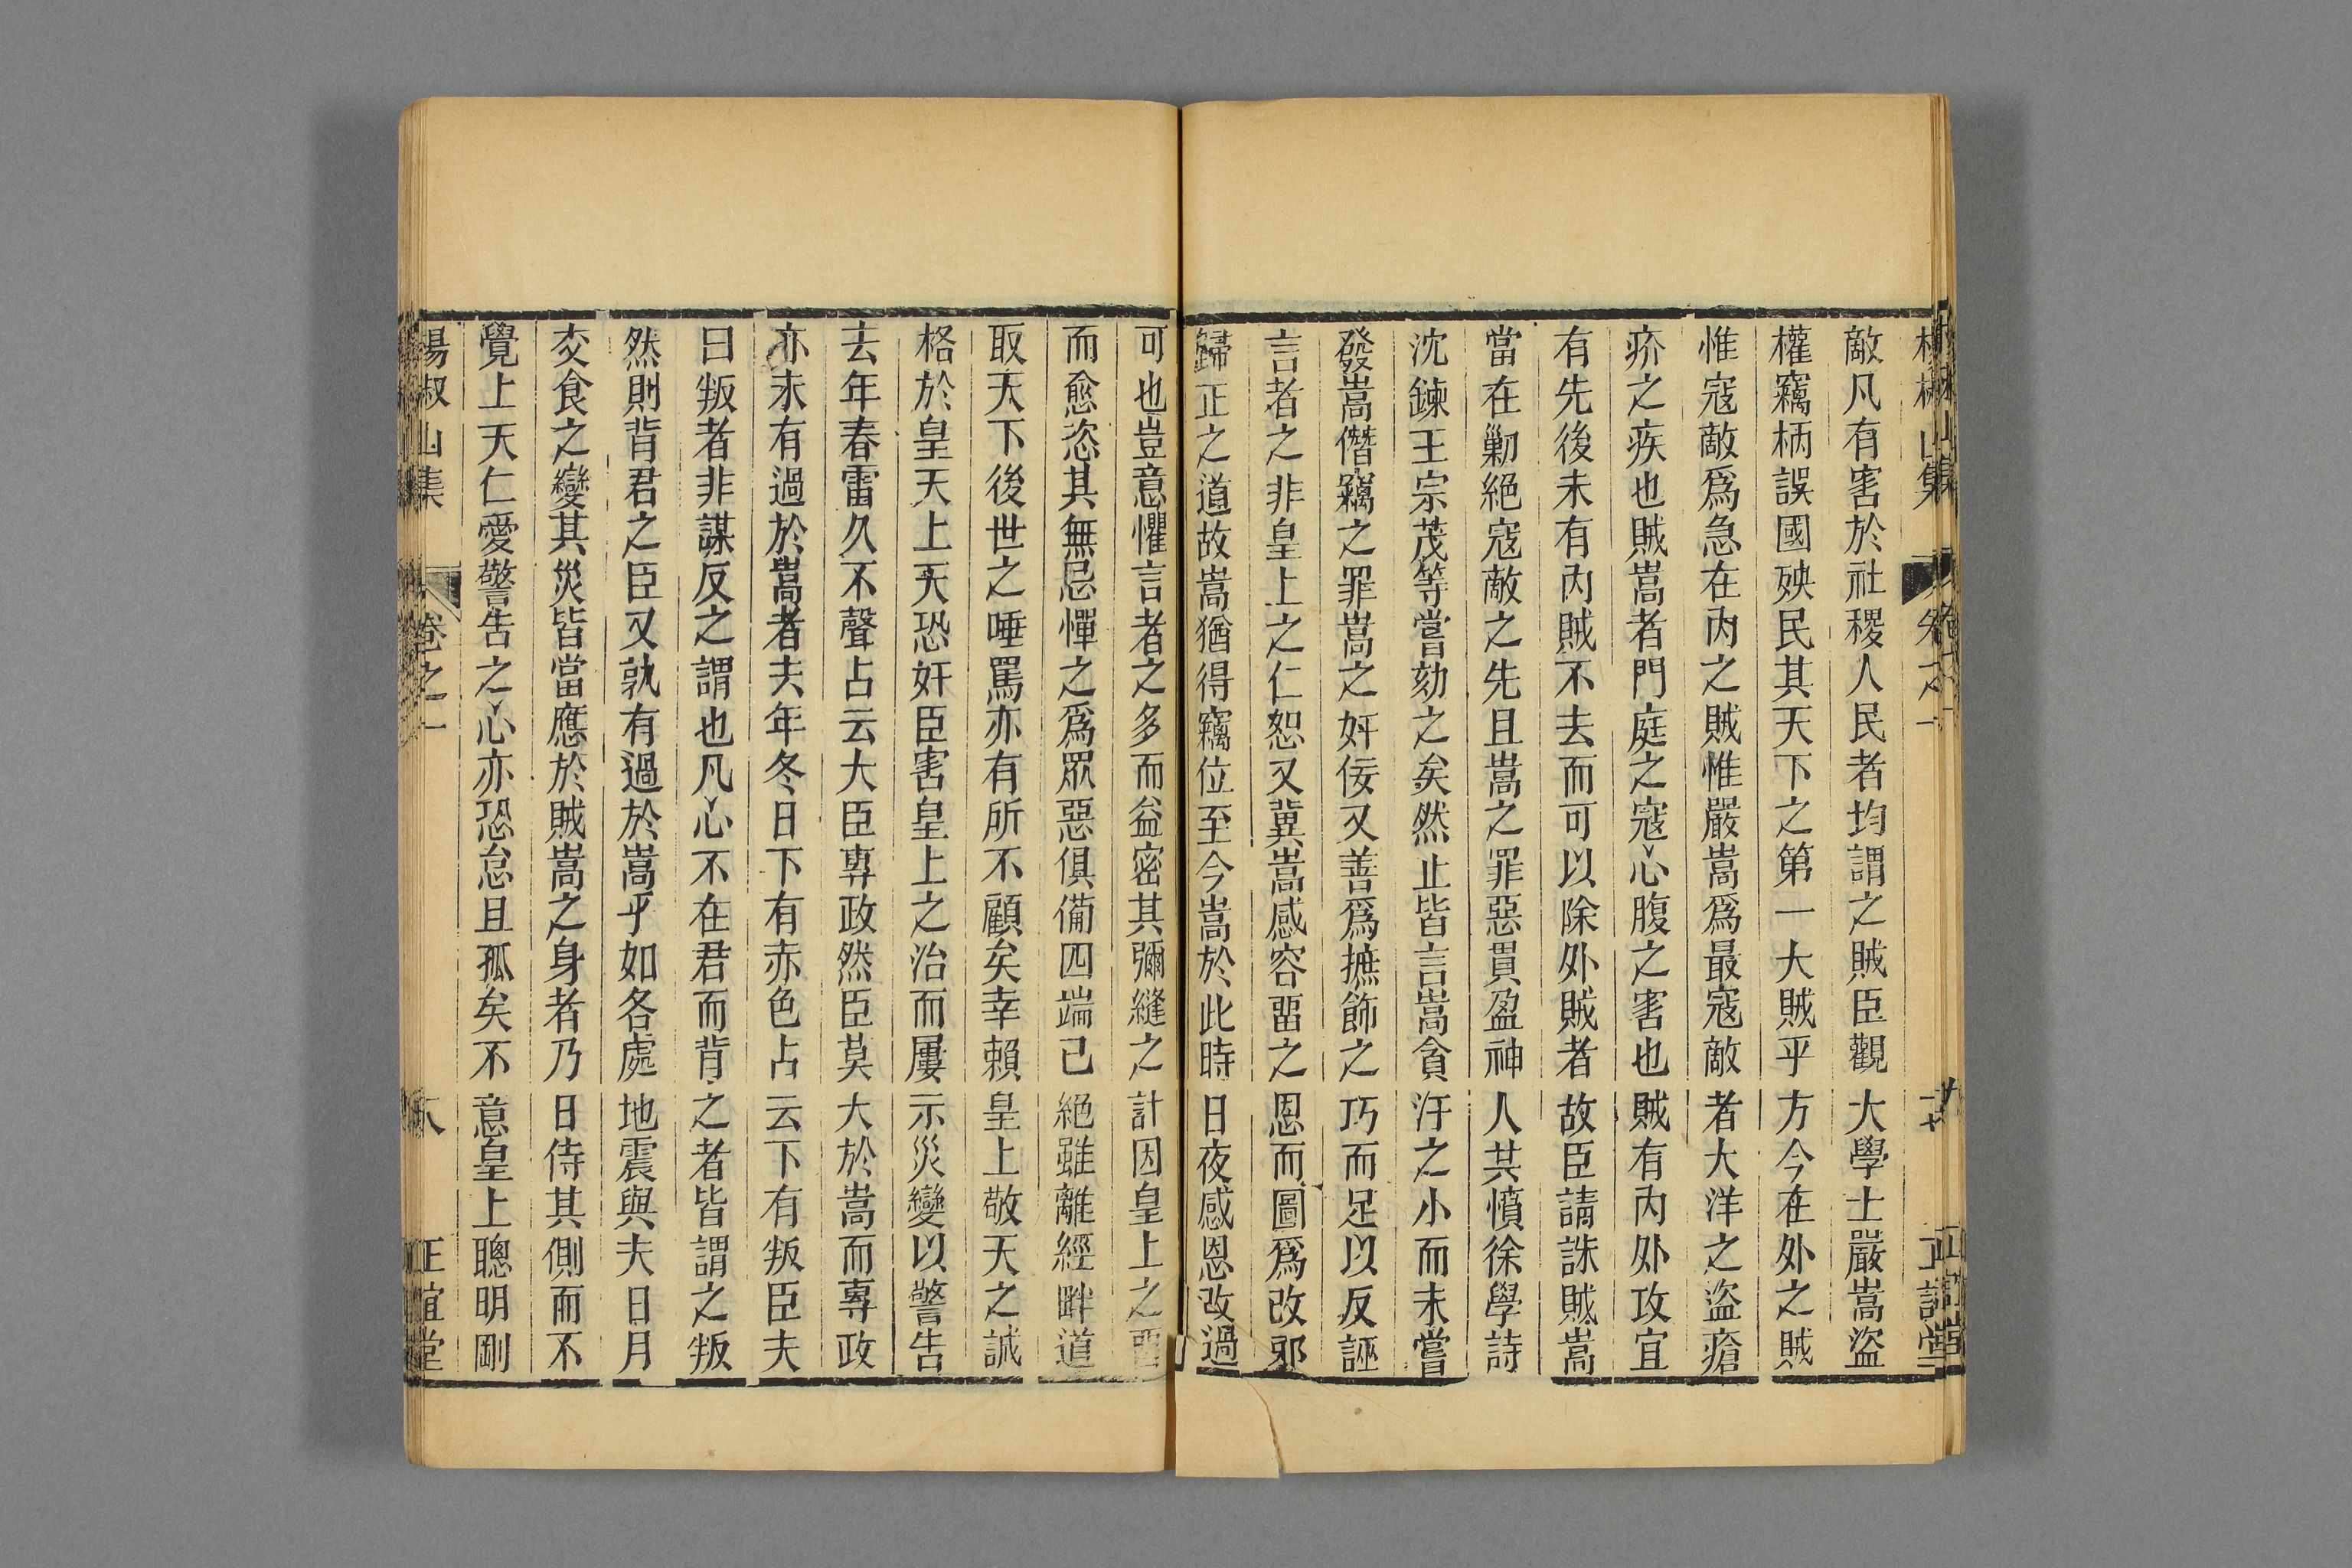 敵凡有害於社稷人民者均謂之賊臣觀大學士嚴嵩盜
權竊柄誤國殃民其天下之第一大賊乎方今在外之賊
惟寇敵爲急在內之賊惟嚴嵩爲最寇敵者大洋之盜瘡
疥之疾也賊嵩者門庭之寇心腹之害也賊有內外攻宜
有先後未有內賊不去而可以除外賊者故臣請誅賊嵩
當在剿絕寇敵之先且嵩之罪惡貫盈神人共憤徐學詩
沈鍊王宗茂等嘗劾之矣然止皆言嵩貪汙之小而未嘗
發嵩僭竊之罪嵩之奸佞又善爲摭飾之巧而足以反誣
言者之非皇上之仁恕又冀嵩感容畱之恩而圖爲改邪
歸正之道故嵩猶得竊位至今嵩於此時日夜感恩改過
可也豈意懼言者之多而益密其彌縫之計因皇上之畱
而愈恣其無忌憚之爲眾惡俱備四端已絕雖離經畔道
取天下後世之唾罵亦有所不顧矣幸賴皇上敬天之誠
格於皇天上天恐奸臣害皇上之治而屢示災變以警告
去年春雷久不聲占云大臣專政然臣莫大於嵩而專政
亦未有過於嵩者夫年冬日下有赤色占云下有叛臣夫
曰叛者非謀反之謂也凡心不在君而背之者皆謂之叛
然則背君之臣又孰有過於嵩乎如各處地震與夫日月
交食之變其災皆當應於賊嵩之身者乃日侍其側而不
覺上天仁愛警告之心亦恐怠且孤矣不意皇上聰明剛
楊椒山集 卷之一 八 正誼堂